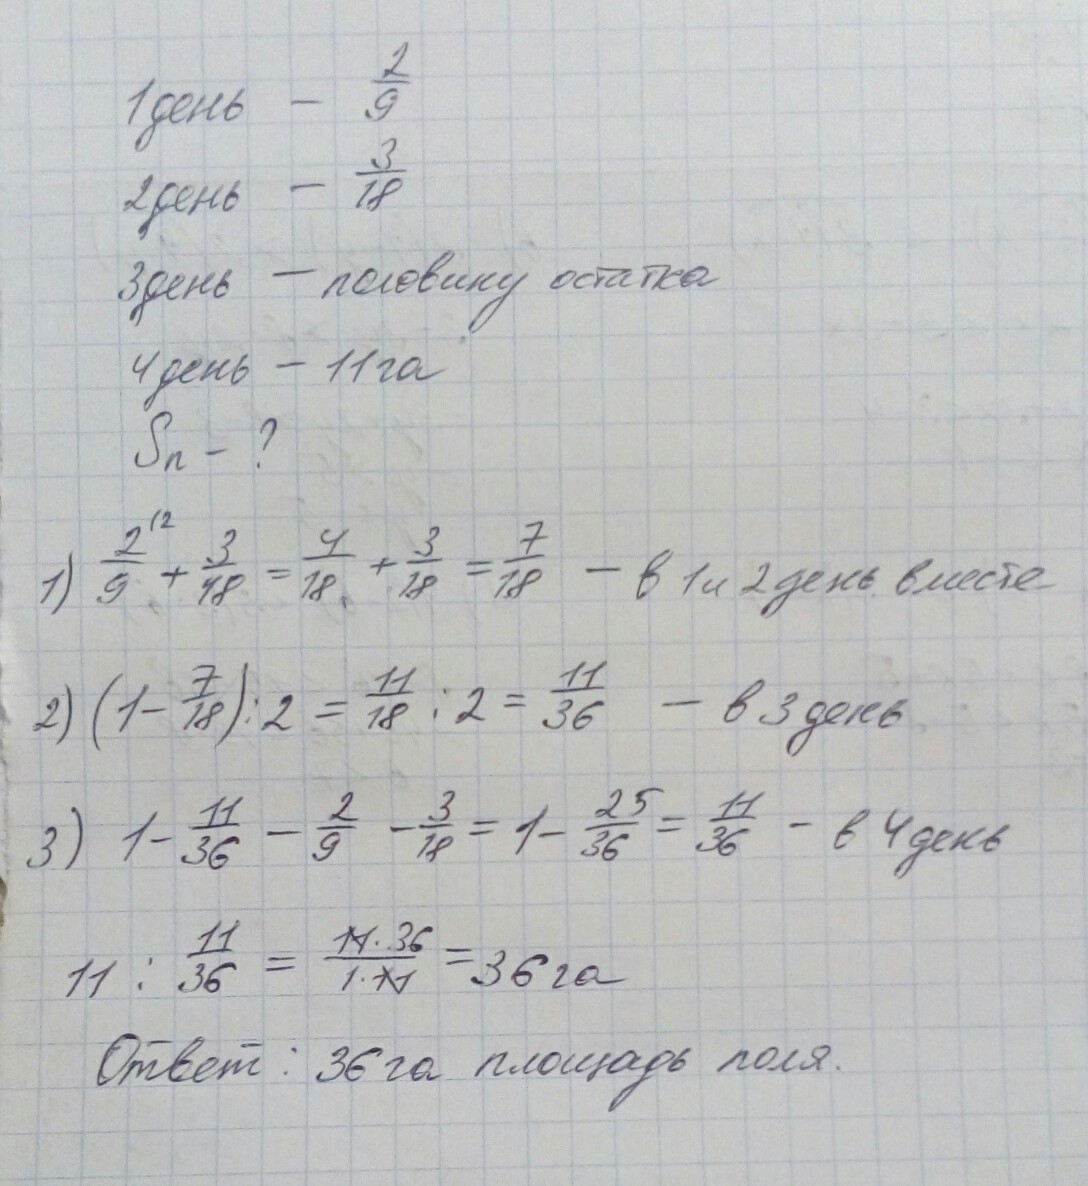 1 день – 2/9
2 день – 3/18
3 день – половину остатка
4 день – 11 га
Sп – ?
1) 2/9 (2 + 3/18 = 4/18 + 3/18 = 7/18 – в 1 и 2 день вместе
2) (1 – 7/18) : 2 = 11/18 : 2 = 11/36 – в 3 день
3) 1 – 11/36 – 2/9 – 3/18 = 1 – 25/36 = 11/36 – в 4 день
11 : 11/36 = 11·36/1·11 = 36 га
Ответ: 36 га площадь поля.